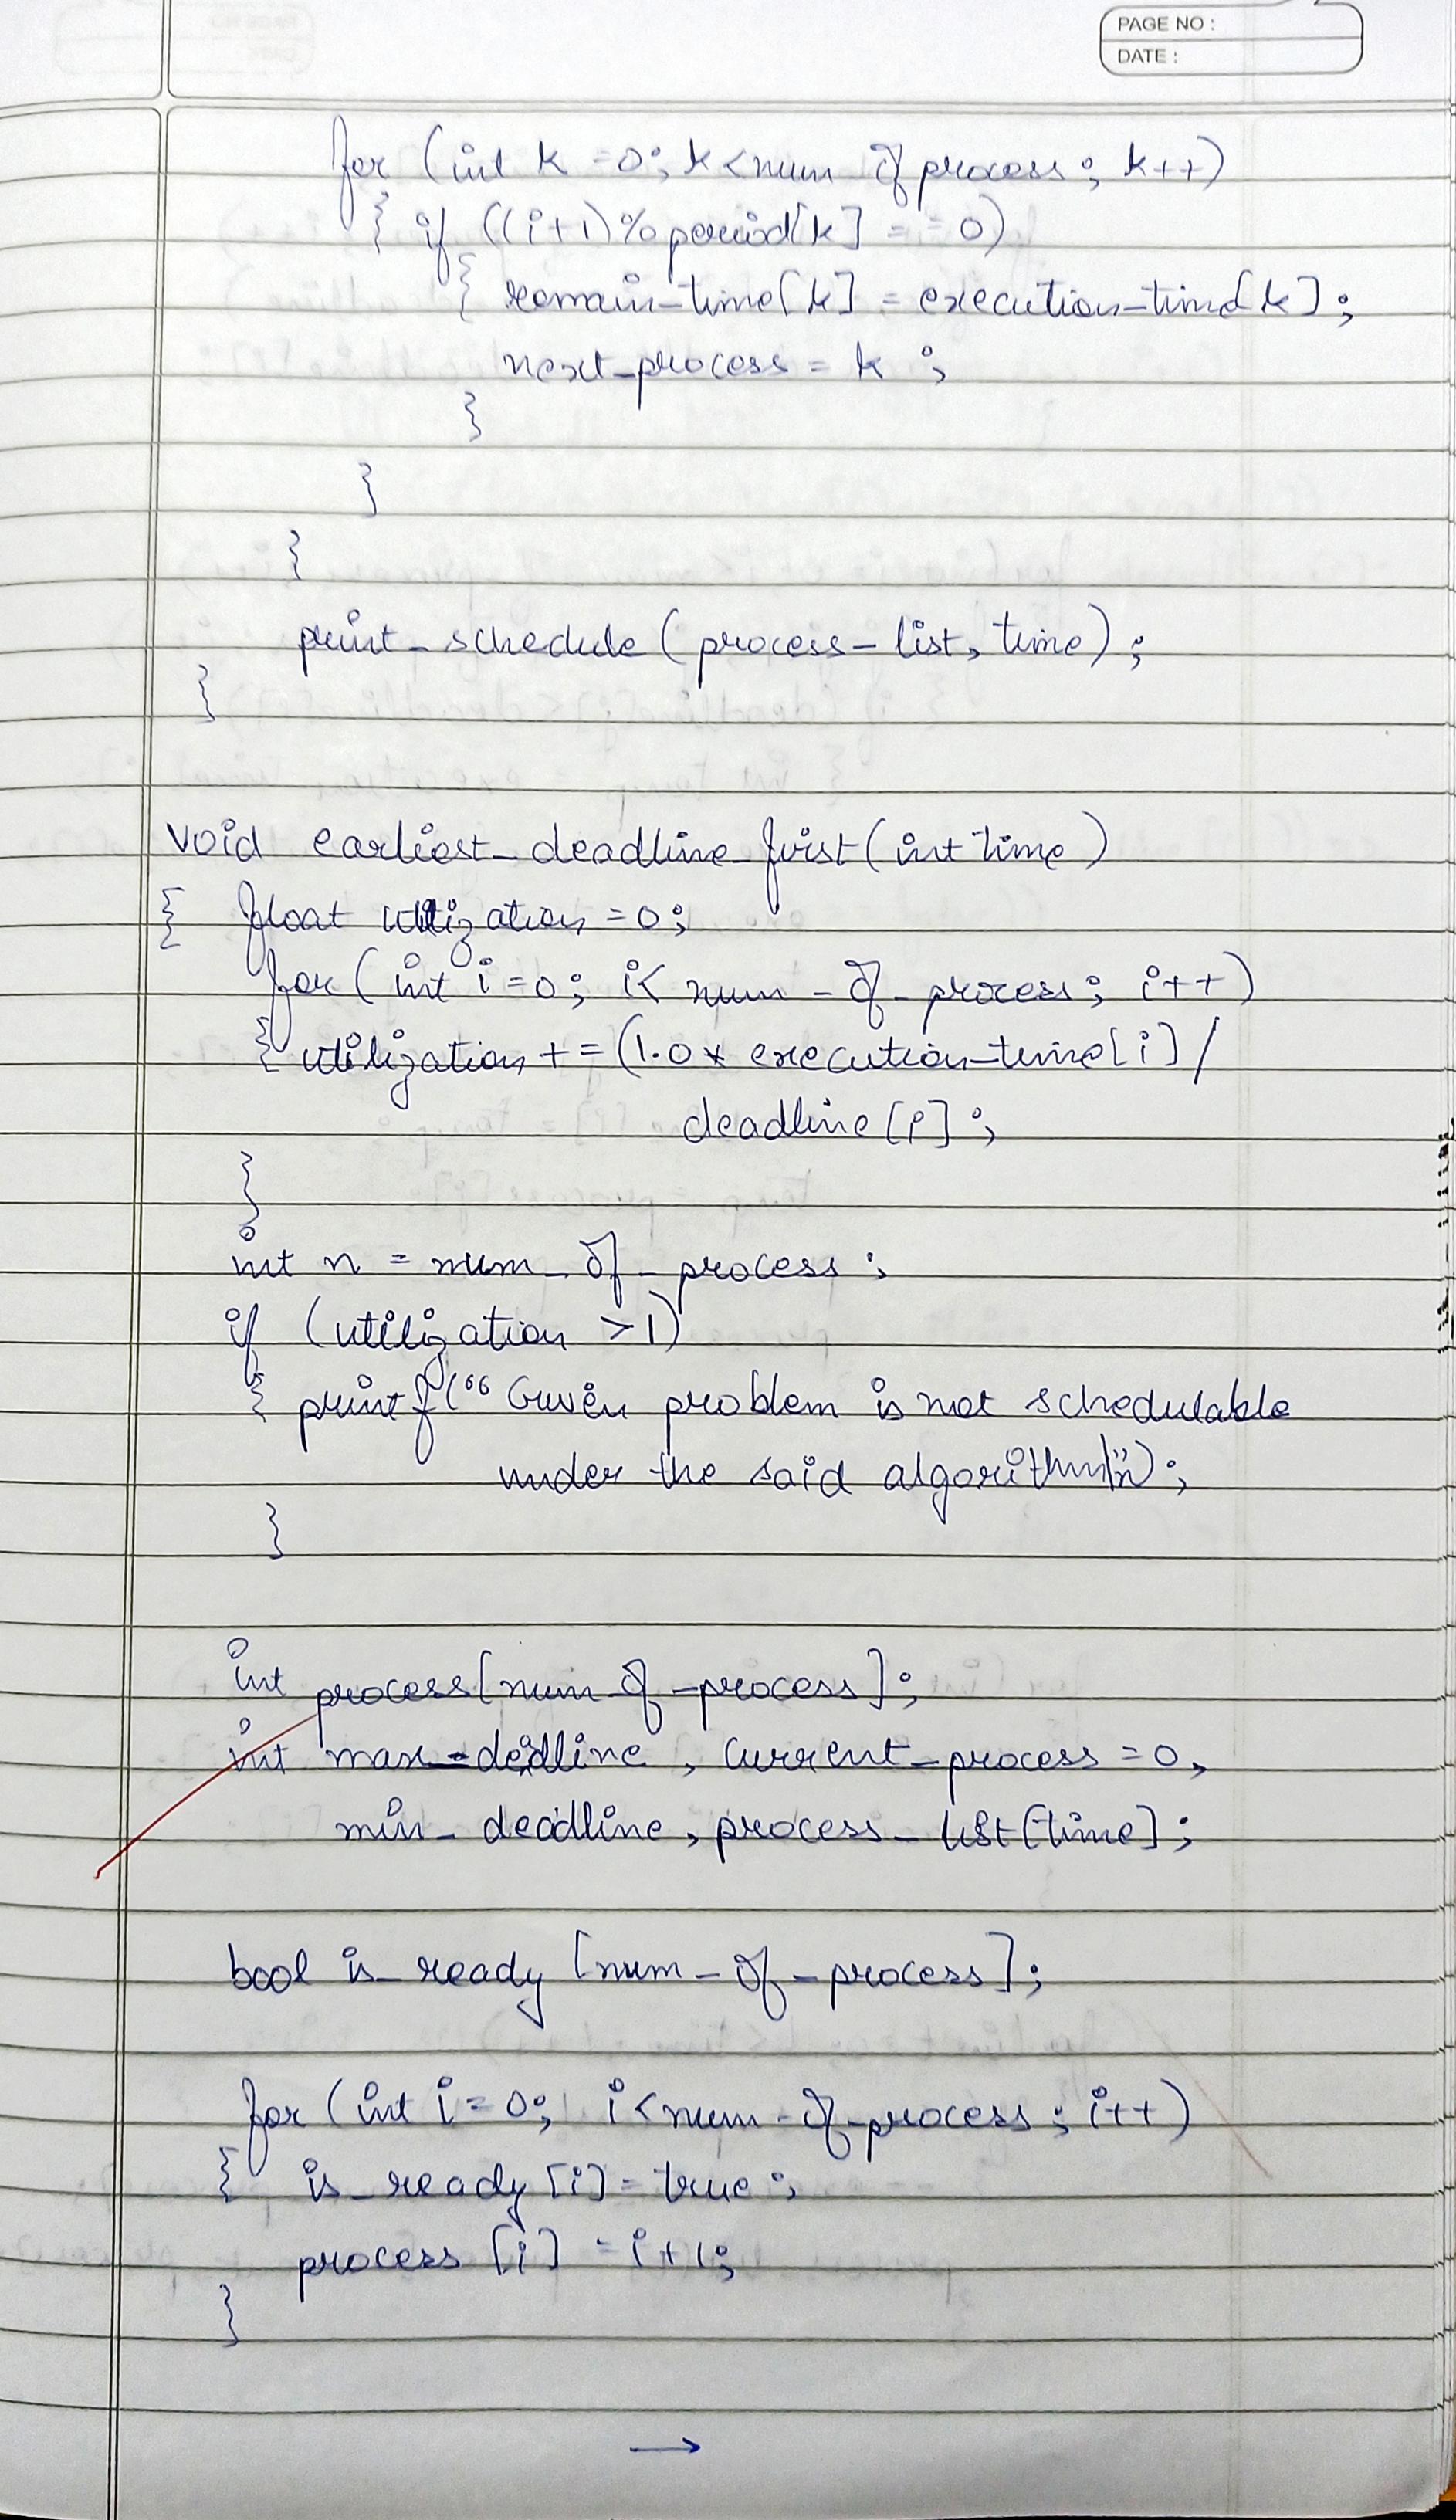 PAGE NO :
DATE :
for (int k = 0; k < num_of process; k++)
{ if ((i+1) % period[k] == 0)
{ remain_time[k] = execution_time[k];
next_process = k ;
}
}
}
print_schedule (process_list, time);
}
void earliest_deadline_first (int time)
{ float utilization = 0;
for (int i = 0; i < num_of_process; i++)
{ utilization += (1.0 * execution_time[i] /
deadline [i] ;
}
int n = num_of_process ;
if (utilization > 1)
{ printf (“ Given problem is not schedulable
under the said algorithm\n”);
}
int process[num_of_process];
int max_deadline, current_process = 0,
min_deadline, process_list[time];
bool is_ready [num_of_process];
for (int i = 0; i < num_of_process; i++)
{ is_ready [i] = true ;
process [i] = i+1;
}
→